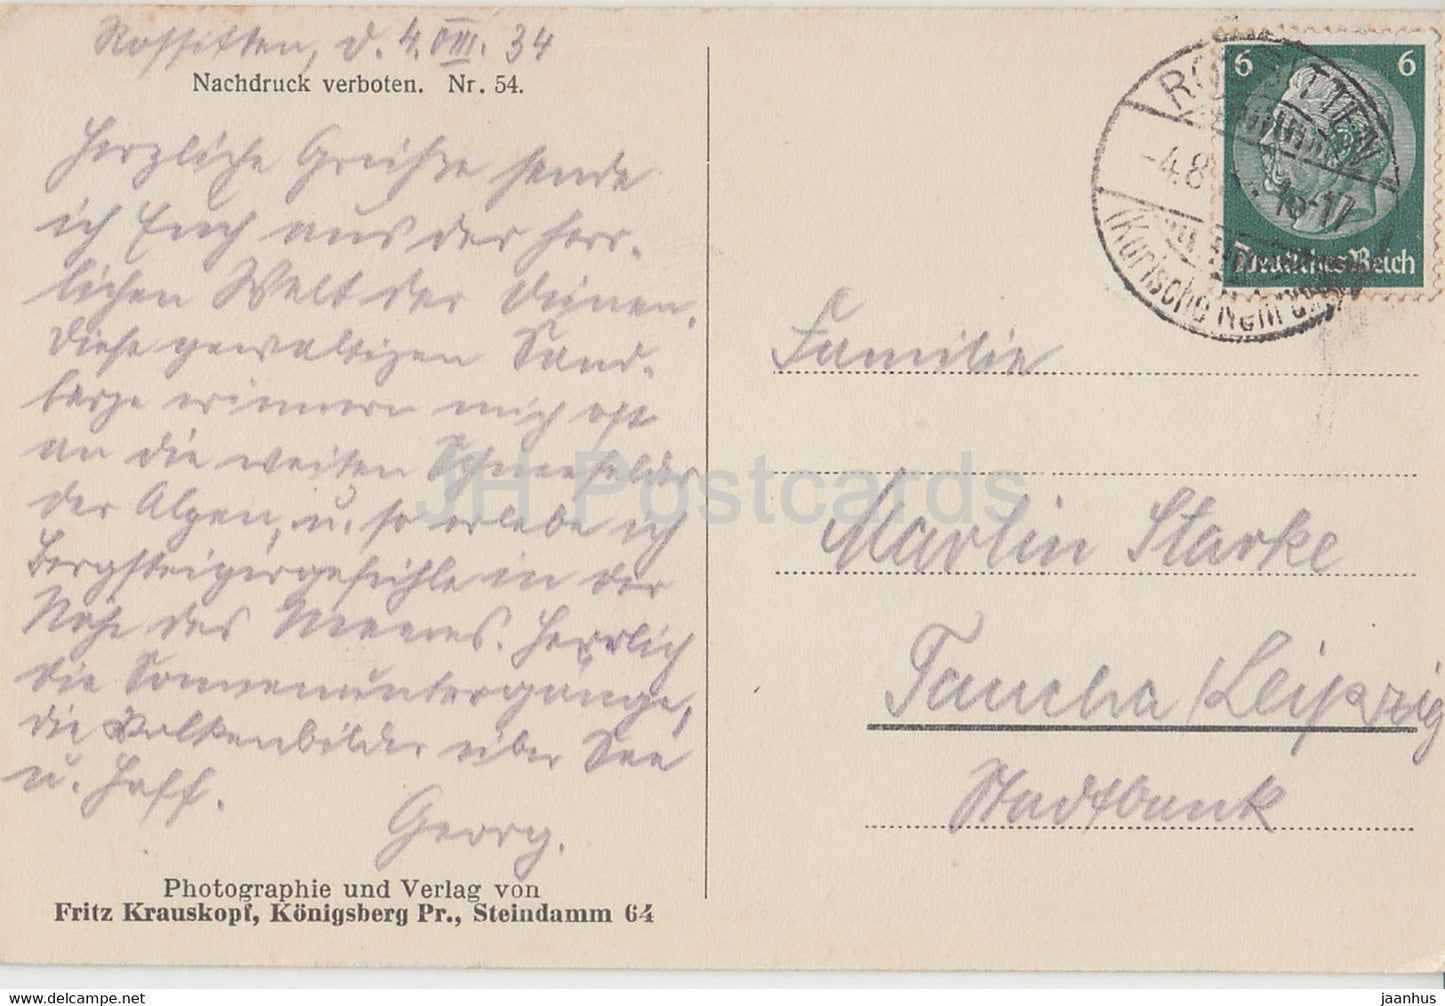 Rossitten, d. 4. VIII. 34
Nachdruck verboten. Nr. 54.
Herzliche Grüße sende
ich Euch aus der herr-
lichen Welt der Dünen.
Diese gewaltigen Sand-
berge erinnern mich oft
an die weiten Schneefelder
der Alpen, u. so erlebe ich
Bergsteigergefühle in der
Nähe des Meeres. Herrlich
die Sonnenuntergänge,
die Wolkenbilder über See
u. Haff.
Georg.
Photographie und Verlag von
Fritz Krauskopf, Königsberg Pr., Steindamm 64
6 6
Deutsches Reich
ROSSITTEN
-4.8. 16-17
(Kurische Nehrung)
Familie
Martin Starke
Taucha/Leipzig
Stadtbank
JH Postcards
www.delcampe.net
jaanhus